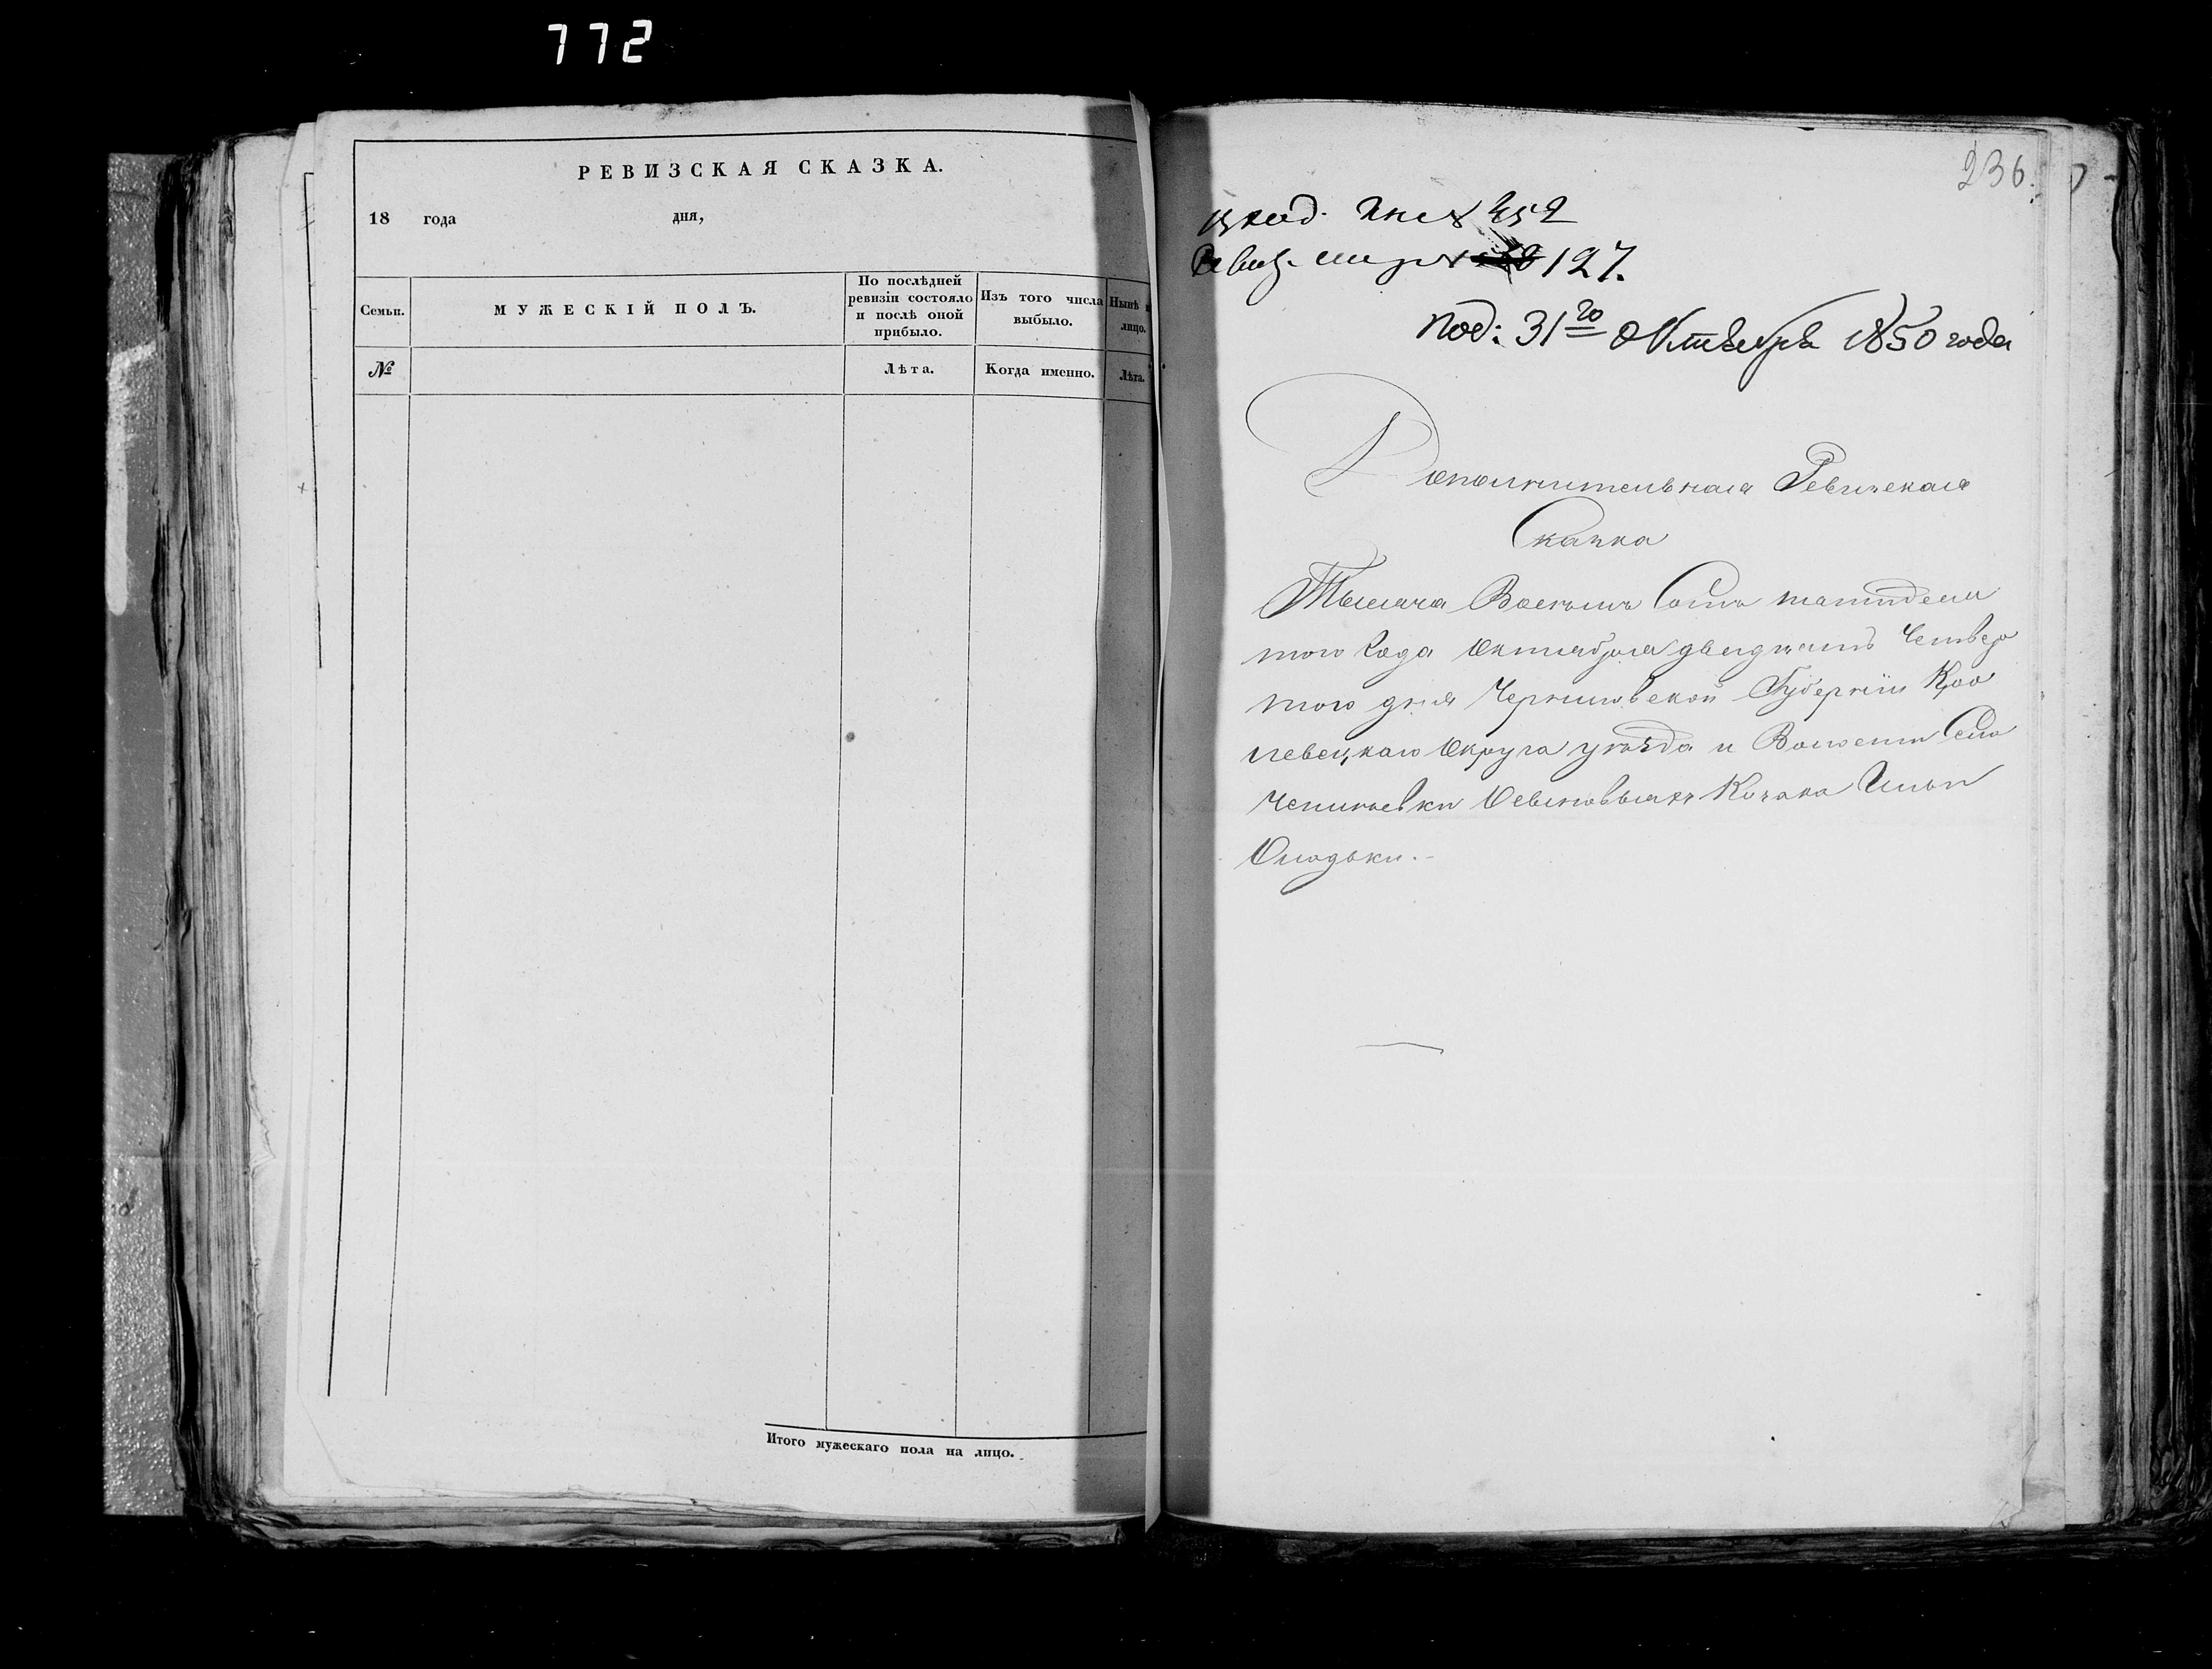 772
РЕВИЗСКАЯ СКАЗКА.
18 года дня,
Семьи.
МУЖЕСКІЙ ПОЛЪ.
По послѣдней
ревизіи состояло
и послѣ оной
прибыло.
Изъ того числа
выбыло.
Нынѣ
лицо.
№
Лѣта.
Когда именно.
Лѣта.
Итого мужескаго пола на лицо.
236.
вход. 452
Ревиз. 127.
Под: 31го Октября 1850 года
Дополнительная Ревизская
Сказка
Тысяча Восемь Сотъ пятидеся
того Года Октября двадцать Четвер
того дня Черниговской Губерніи Кро
левецкаго Округа уѣзда и Волости Села
Чепліевки Козака Ильи